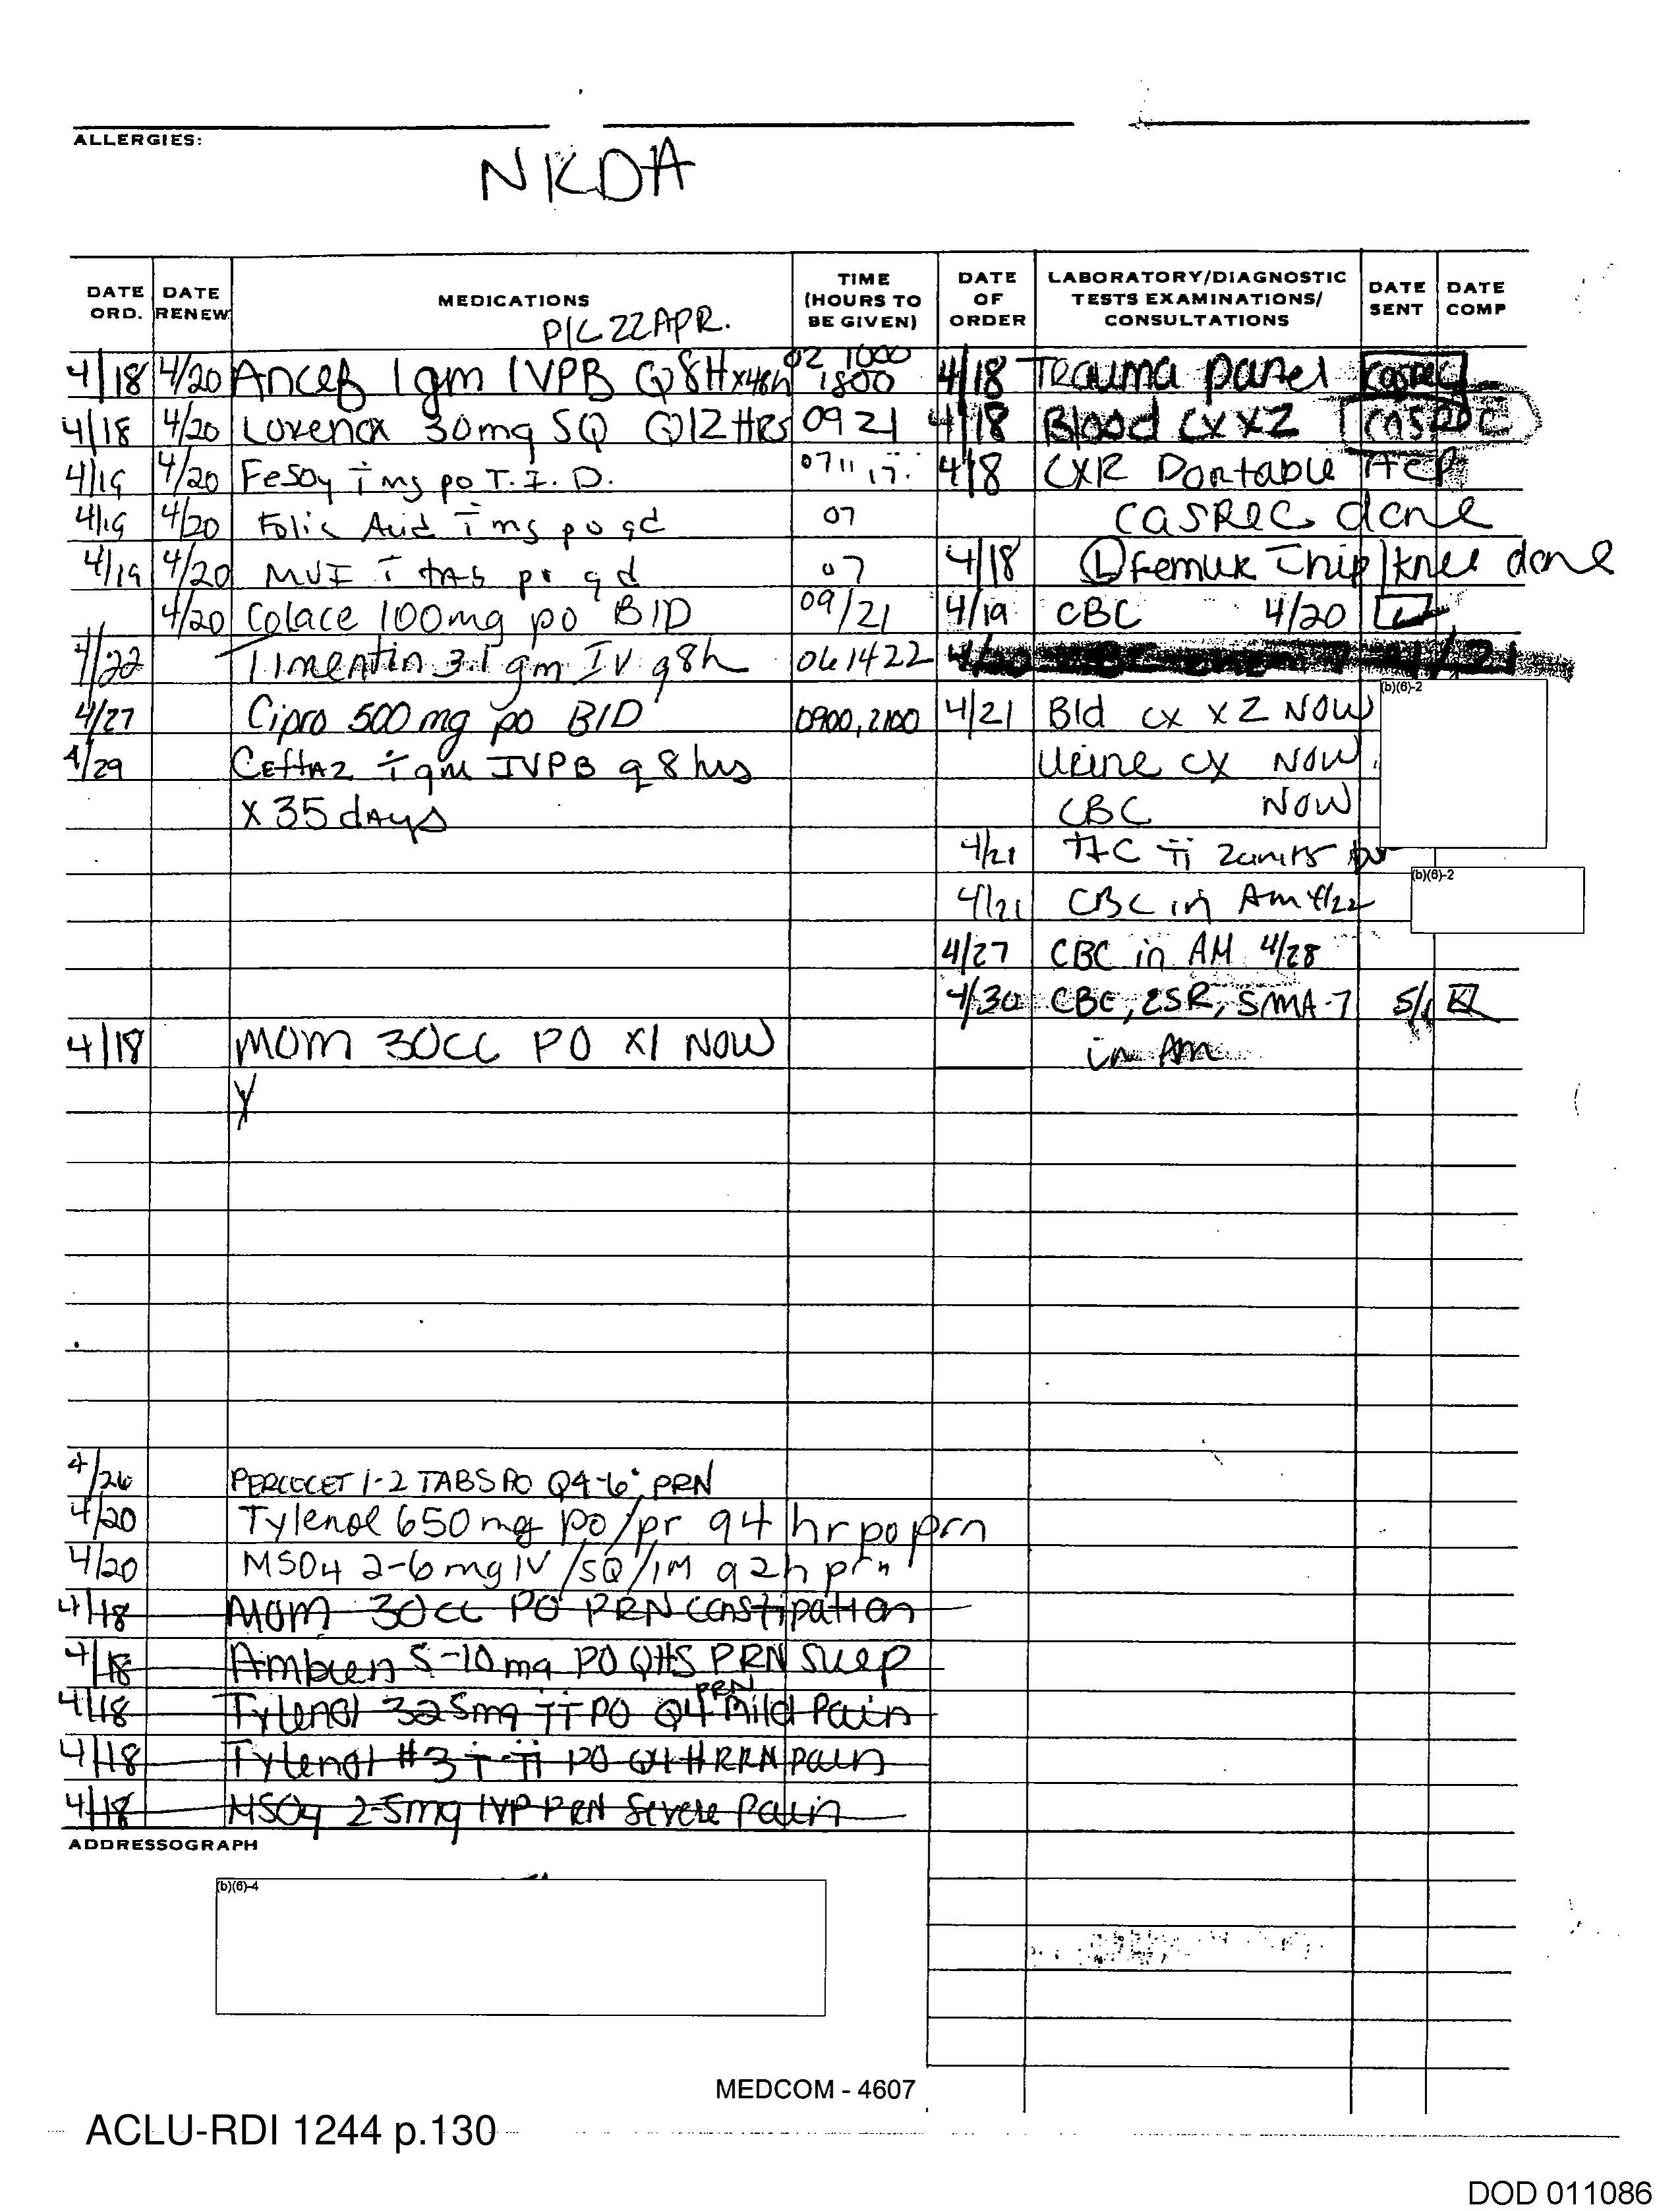 ALLERGIES:
NKDA
DATE ORD. DATE RENEW MEDICATIONS TIME (HOURS TO BE GIVEN) DATE OF ORDER LABORATORY/DIAGNOSTIC TESTS EXAMINATIONS/ CONSULTATIONS DATE SENT DATE COMP
22 APR.
4/18 4/20 Ancef 1gm IVPB Q8H x48h 02 1000 1800 4/18 Trauma panel casrec
4/18 4/20 Lovenox 30mg SQ Q12 HRS 09 21 4/18 Blood cx x2 casrec
4/19 4/20 FeSO4 i mg po T.I.D. 07 11 17. 4/18 CXR Portable
4/19 4/20 Folic Acid i mg po qd 07 casrec done
4/19 4/20 MVI i tab po qd 07 4/18 (L) Femur hip/knee done
4/20 Colace 100mg po BID 09/21 4/19 CBC 4/20
4/22 Timentin 3.1 gm IV q8h 06 14 22
4/27 Cipro 500mg po BID 0900, 2100 4/21 Bld cx x2 NOW (b)(6)-2
4/29 Ceftaz i gm IVPB q 8 hrs Urine cx NOW
x 35 days CBC NOW
4/21 T+C ii 2units
4/21 CBC in Am 4/22 (b)(6)-2
4/27 CBC in AM 4/28
4/30 CBC, ESR, SMA-7 5/1
4/18 MOM 30cc PO x1 NOW in Am
4/26 PERCOCET 1-2 TABS PO Q4-6° PRN
4/20 Tylenol 650mg po/pr q4 hr po prn
4/20 MSO4 2-6mg IV/SQ/IM q2h prn
4/18 MOM 30cc PO PRN constipation
4/18 Ambien 5-10mg PO QHS PRN sleep
4/18 Tylenol 325mg ii PO Q4 PRN Mild Pain
4/18 Tylenol #3 i-ii PO Q4H PRN pain
4/18 MSO4 2-5mg IVP PRN Severe Pain
ADDRESSOGRAPH
(b)(6)-4
MEDCOM - 4607
ACLU-RDI 1244 p.130
DOD 011086